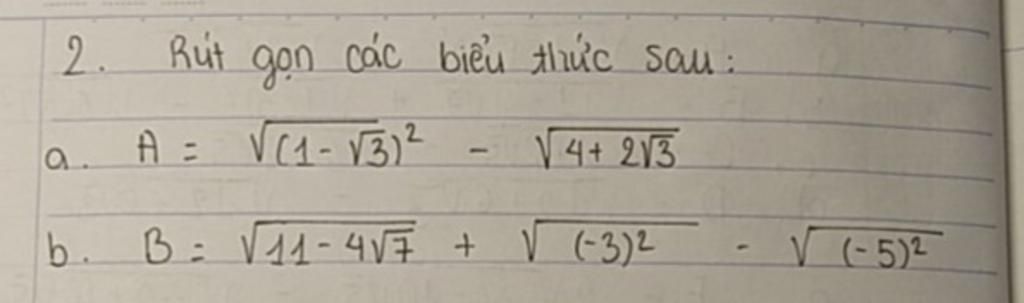 2. Rút gọn các biểu thức sau:
a. A = √(1-√3)² - √4+2√3
b. B = √11-4√7 + √(-3)² - √(-5)²